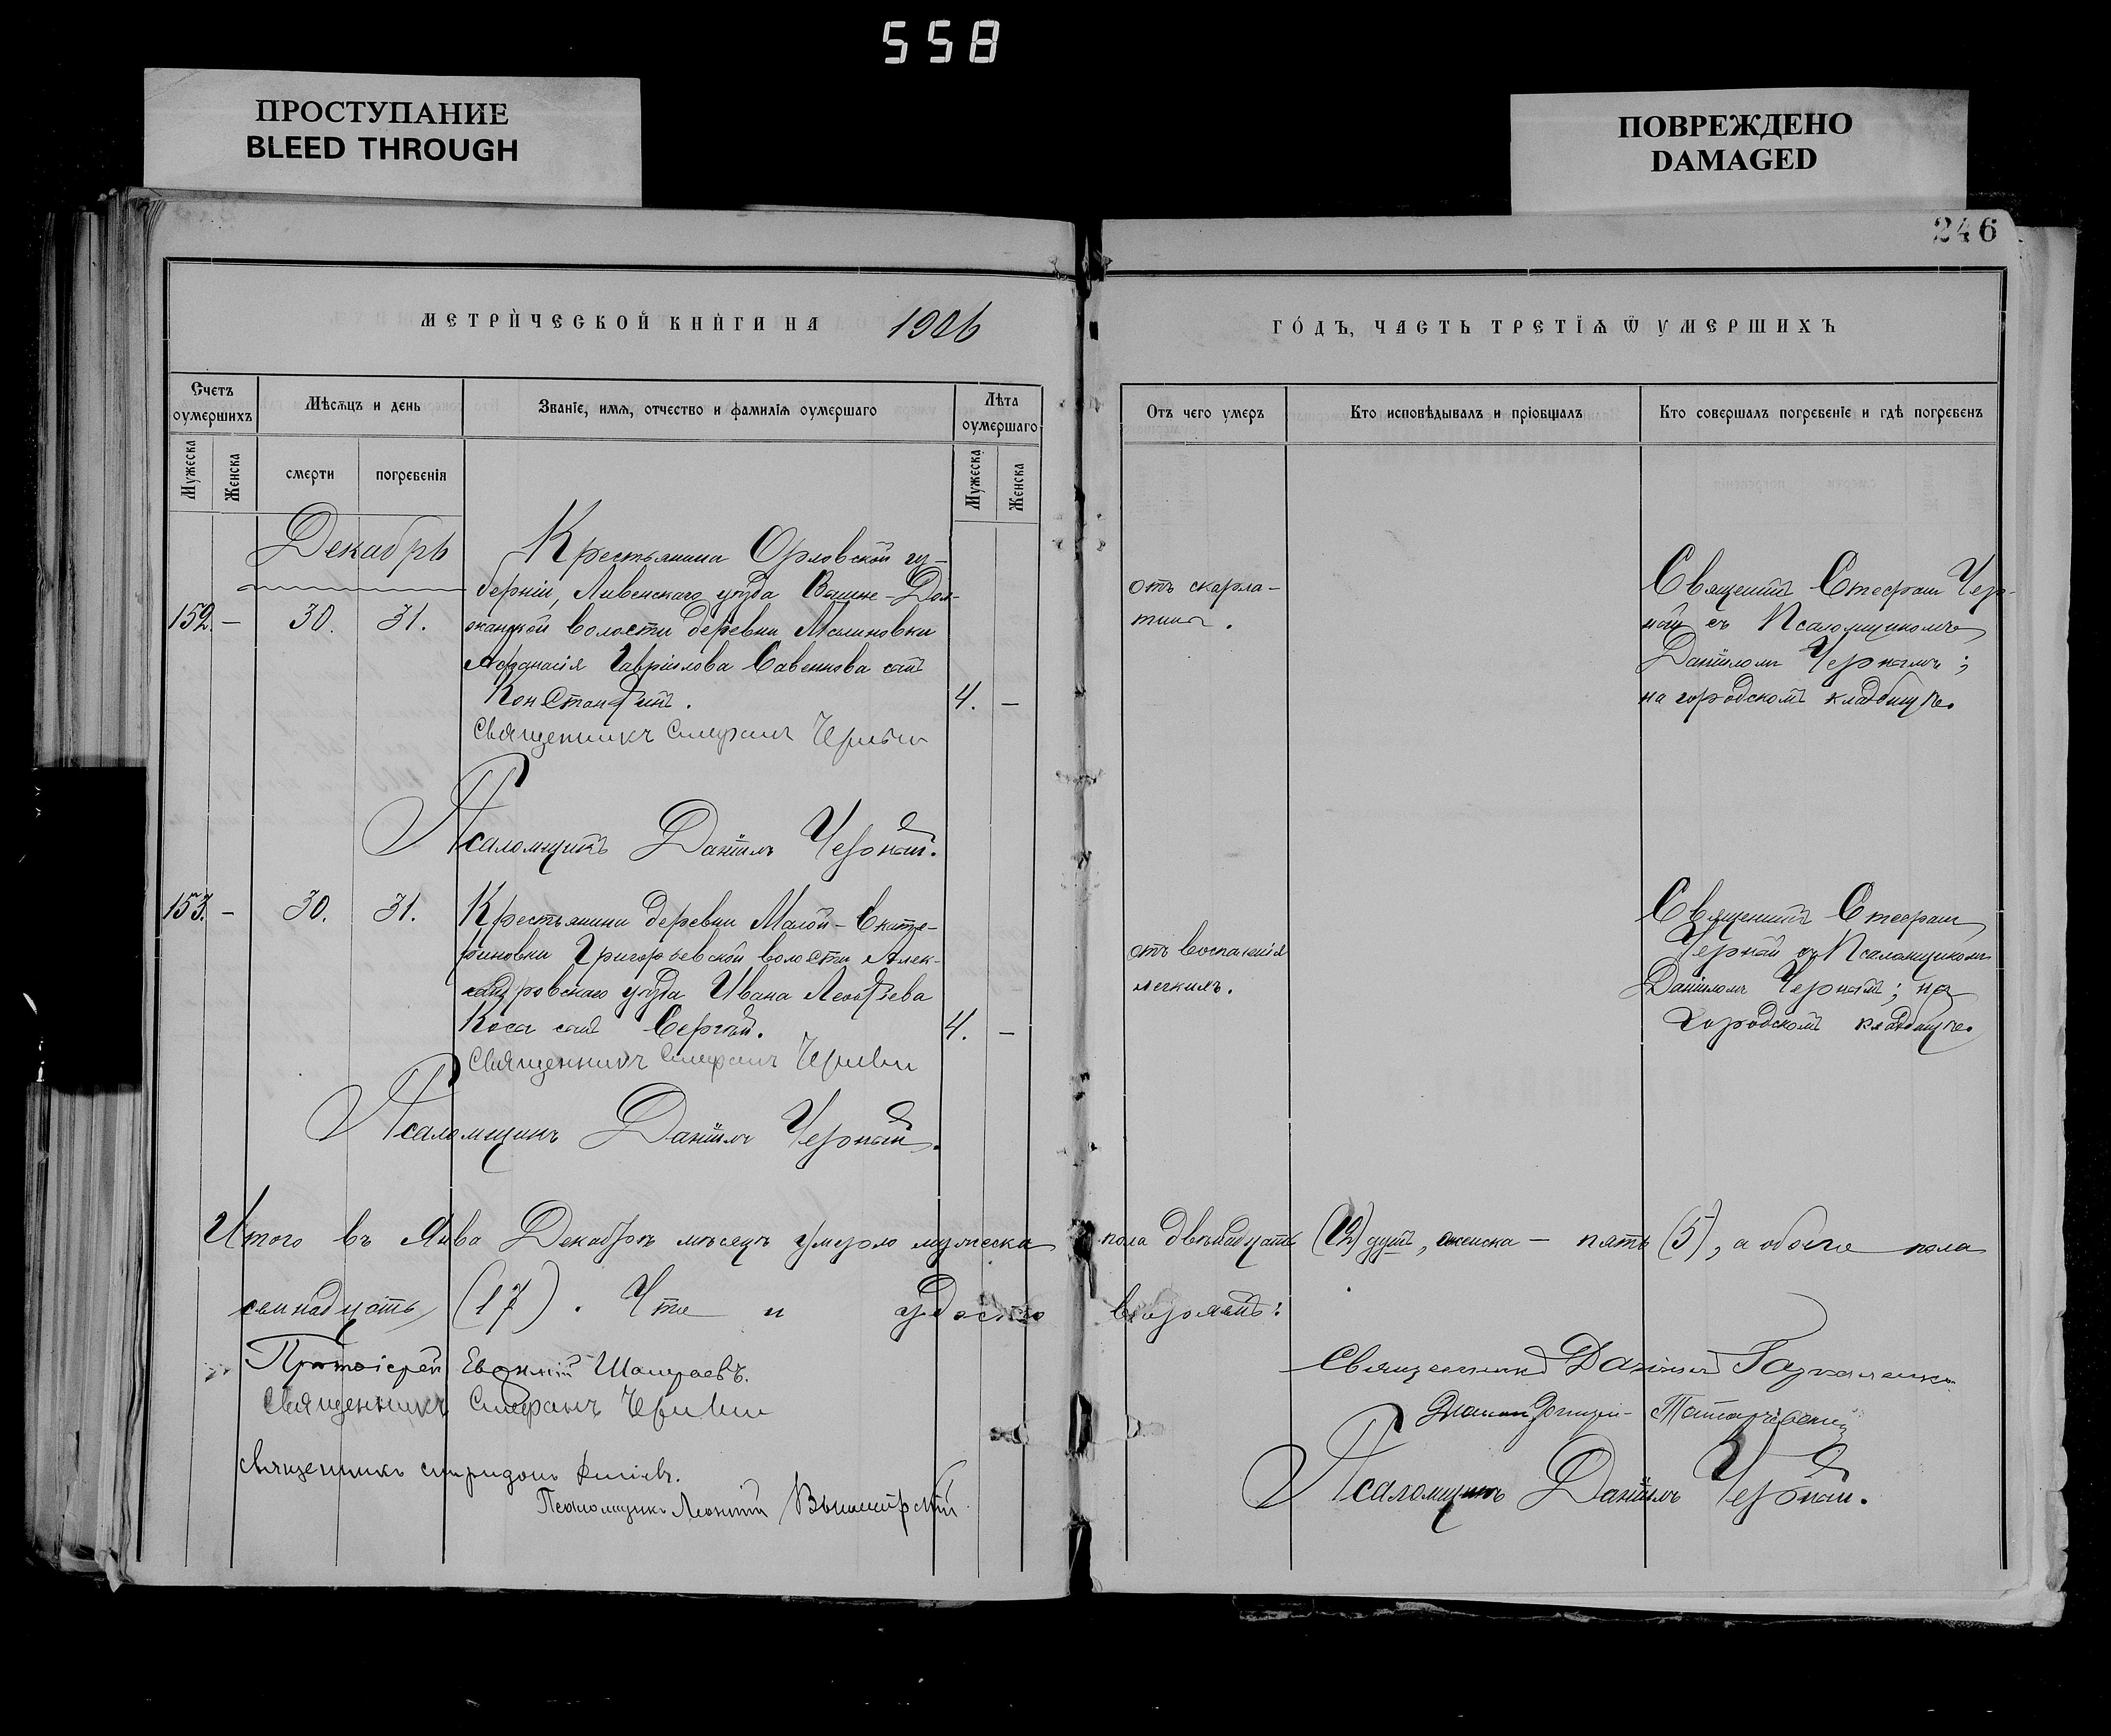 558
ПРОСТУПАНИЕ
BLEED THROUGH
ПОВРЕЖДЕНО
DAMAGED
246
МЕТРИ́ЧЕСКОЙ КНИ́ГИ НА 1906
ГО́ДЪ, ЧАСТЬ ТРЕТІѦ Ѿ УМЕРШИХЪ
Счетъ оумершихъ
Мѣсѧцъ и день
Званіе, имѧ, отчество и фамиліѧ оумершаго
Лѣта оумершаго
Мужеска
Женска
смерти
погребенія
Мужеска
Женска
Отъ чего умеръ
Кто исповѣдывалъ и пріобщалъ
Кто совершалъ погребеніе и гдѣ погребенъ
Декабрь
Крестьянина Орловской гу-
берніи, Ливенскаго уѣзда Вышне-Дол-
152. – 30. 31.
жанской волости деревни Малиновки
Афанасія Гавріилова Савенкова сынъ
Константинъ. 4. –
Священникъ Стефанъ Черный
Псаломщикъ Даніилъ Черный.
отъ скарла-
тины.
Священникъ Стефанъ Чер-
ный съ Псаломщикомъ
Даніиломъ Чернымъ;
на городскомъ кладбищѣ.
153. – 30. 31.
Крестьянина деревни Малой-Екате-
риновки Григорьевской волости Алек-
сандровскаго уѣзда Ивана Леонтіева
Коса сынъ Сергій. 4. –
Священникъ Стефанъ Черный
Псаломщикъ Даніилъ Черный.
отъ воспаленія
легкихъ.
Священникъ Стефанъ
Черный съ Псаломщикомъ
Даніиломъ Чернымъ; на
городскомъ кладбищѣ.
Итого въ Декабрѣ мѣсяцѣ умерло мужеска
пола двѣнадцать (12) душъ, женска – пять (5), а обоего пола
семнадцать (17). Что и удосто
вѣряемъ:
Протоіерей Евѳимій
Священникъ Стефанъ Черный
Священникъ Спиридонъ
Псаломщикъ Леонтій
Священникъ Даніилъ
Псаломщикъ Даніилъ Черный.